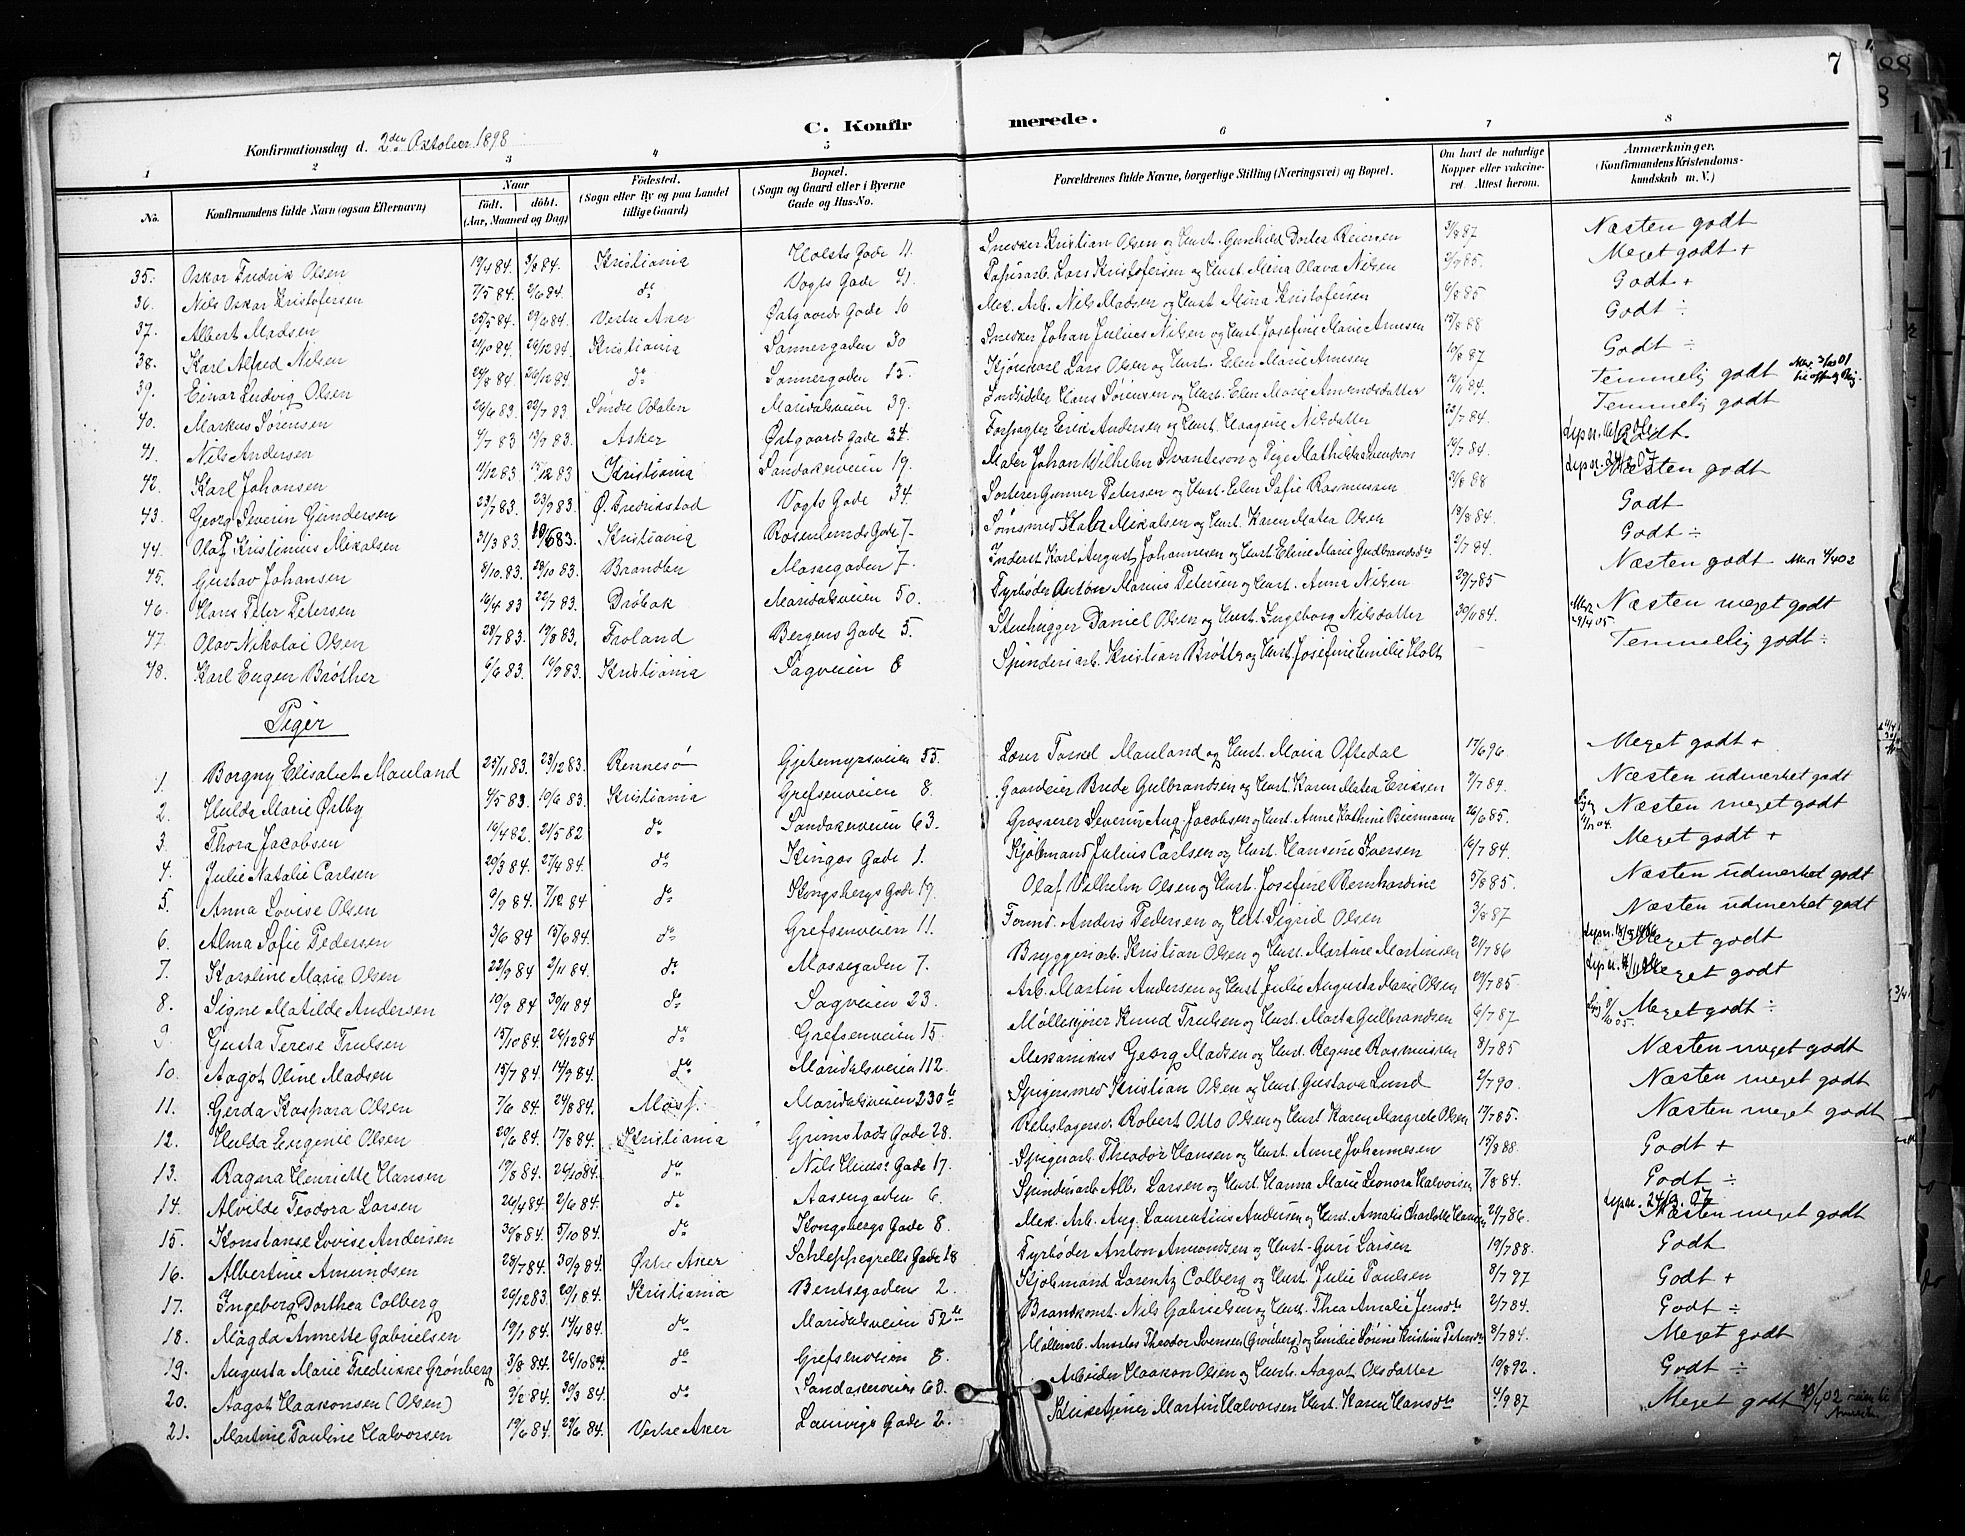 7
C. Konfirmerede.
Konfirmationsdag d. 2den Oktober 1898
1 2 3 4 5 6 7 8
No. Konfirmandens fulde Navn (ogsaa Efternavn) Naar født. døbt. (Aar, Maaned og Dag) Fødested. (Sogn eller By og paa Landet tillige Gaard) Bopæl. (Sogn og Gaard eller i Byerne Gade og Hus-No. Forældrenes fulde Navne, borgerlige Stilling (Næringsvei) og Bopæl. Om havt de naturlige Kopper eller vakcineret. Attest herom. Anmærkninger. (Konfirmandens Kristendomskundskab m. V.)
35. Oskar Fredrik Olsen 19/4 84. Kristiania Holsts Gade 11. Snekker Kristian Olsen og Hust. Gunhild Dortea Reiersen Næsten godt
36. Nils Oskar Kristofersen 7/5 84. do Vogts Gade 41. Papirarb. Lars Kristofersen og Hust. Mina Olava Nilsen Meget godt +
37. Albert Madsen 25/5 84 29/6 84 Vestre Aker Østgaards Gade 10 Mek. Arb. Nils Madsen og Hust. Mina Kristofersen 6/8 85 Godt +
38. Karl Alfred Nilsen 26/12 84 Kristiania Sannergaden 30 Snekker Johan Julius Nilsen og Hust. Josefine Marie Arnesen 15/8 88 Godt ÷
39. Einar Ludvig Olsen 26/12 84 do Sannergaden 15. Kjørekarl Lars Olsen og Hust. Elen Marie Arnesen 10/8 87 Godt ÷
40. Markus Sørensen 26/6 83 22/7 83 Søndre Odalen Maridalsveien 39. Indsidder Hans Sørensen og Hust. Elen Marie Amundsdatter Temmelig godt
41. Nils Andersen 4/7 83 19/7 83. Asker Østgaards Gade 34. Forpagter Erik Andersen og Hust. Haagine Nilsdatter 22/7 84. Temmelig godt
42. Karl Johansen 11/12 83 Kristiania Sandakerveien 19. Maler Johan Wilhelm Svanteson og Pige Mathilde Svendsen 14/7 84. Godt.
43. Georg Severin Gundersen 23/7 83. 23/9 83. Ø. Fredrikstad Vogts Gade 34. Sorterer Gunner Petersen og Hust. Elen Sofie Rasmussen Næsten godt
44. Olaf Kristinius Mikalsen 31/3 83. 10/6 83. Kristiania Rosenlunds Gade 7. Hust. Karen Matea Olsen 19/8 84. Godt
45. Gustav Johansen 8/10. 83. 28/10 83. Brandbu Mossegaden 7. Inderst Karl August Johannesen og Hust Eline Marie Gudbrandsdt 2/7 84. Godt ÷
46. Hans Peter Petersen 16/4 83 22/7 83. Drøbak Maridalsveien 50. Fyrbøder Anton Marius Petersen og Hust. Anna Nilsen 29/7 85 Næsten godt
47. Olav Nikolai Olsen 28/7 83. 19/8 83. Froland Bergens Gade 5. Stenhugger Daniel Olsen og Hust. Ingeborg Nilsdatter 30/11 84. Næsten meget godt
48. Karl Eugen Brøther 6/6 83. 16/9 83. Kristiania Sagveien 8 Spinderiarb. Kristian Brøther og Hust Josefine Emilie Holt Temmelig godt ÷
Piger
1. Borgny Elisabet Mauland 25/11 83. 23/12 83. Rennesø Gjetemyrsveien 55. Lærer Torkel Mauland og Hust. Maria Oftedal 17/6 96. Meget godt +
2. Hulda Marie Ørtby 4/5 83. 10/6 83. Kristiania Grefsenveien 8. Gaardeier Brede Gulbrandsen og Hust. Karen Matea Eriksen 7/7 84. Næsten udmerket godt
3. Thora Jacobsen 16/4 82. 21/5 82 do Sandakerveien 63. Grosserer Severin Aug. Jacobsen og Hust. Anne Kathrine Biermann 26/6 85. Næsten meget godt
4. Julie Natalie Carlsen 20/3 84 27/4 84. do Kingos Gade 1. Kjøbmand Julius Carlsen og Hust. Hansine Iversen 16/7 84. Meget godt +
5. Anna Lovise Olsen 9/9 84. 7/12 84 do Kongsbergs Gade 19. Olaf Vilhelm Olsen og Hust. Josefine Bernhardine Næsten udmerket godt
6. Alma Sofie Pedersen 3/6 84 15/6 84. do Grefsenveien 11. Formd. Anders Pedersen og Hust. Sigrid Olsen 3/8 87 Næsten udmerket godt
7. Karoline Marie Olsen 22/9 84 2/11 84. do Mossegaden 7. Bryggeriarb. Kristian Olsen og Hust. Martine Martinsen 21/7 86 Meget godt
8. Signe Matilde Andersen 10/9 84 30/11 84 do Sagveien 23. Arb. Martin Andersen og Hust Julie Augusta Marie Olsen Meget godt
9. Gusta Terese Trulsen 15/10 84. 26/12 84 do Grefsenveien 15. Møllekjører Knud Trulsen og Hust. Marta Gulbrandsen 6/7 87 Meget godt ÷
10. Aagot Oline Madsen 15/7 84. 14/9 84. do Maridalsveien 112. Mekanikus Georg Madsen og Hust. Regine Rasmussen 8/7 85 Næsten meget godt
11. Gerda Kaspara Olsen 7/6 84. 24/8 84. Moss. Maridalsveien 230 b Spigersmed Kristian Olsen og Hust. Gustava Lund 2/7 90. Næsten meget godt
12. Hulda Eugenie Olsen 20/6 84. 17/8 84. Kristiania Grimstads Gade 28. Rebslagersv. Robert Otto Olsen og Hust. Karen Margrete Olsen 17/7 85. Næsten meget godt
13. Ragna Henriette Hansen 19/8 84. 26/10 84. do Nils Huus: Gade 17. Spigerarb. Theodor Hansen og Hust. Anne Johannesen 15/8 88. Godt +
14. Alvilde Teodora Larsen 26/4 84 2/6 84. do Aasengaden 6. Spinderiarb. Alb. Larsen og Hust. Hanna Marie Leonora Halvorsen 7/8 84. Godt ÷
15. Konstanse Lovise Andersen 30/8 84. 5/10 84. do Kongsbergs Gade 8. Mek. Arb. Aug. Laurentius Andersen og Hust. Amalie Charlotte Hansen Næsten meget godt
16. Albertine Amundsen 28/7 84. 30/9 84. Østre Aker Schleppegrells Gade 18 Fyrbøder Anton Amundsen og Hust. Guri Larsen 19/7 88. Godt
17. Ingeborg Dorthea Colberg 26/12 83. 20/1 84. Kristiania Bentsegaden 2. Kjøbmand Lorentz Colberg og Hust. Julie Paulsen 8/7 97 Godt +
18. Magda Annette Gabrielsen 19/1 84. 14/4 84. do Maridalsveien 52 b Brandkonst. Nils Gabrielsen og Hust. Thea Amalie Jensdt 2/7 84. Godt ÷
19. Augusta Marie Fredrikke Grønberg 3/8 84. 26/10 84. do Grefsenveien 8. Theodor Svensen (Grønberg) og Emilie Lovine Kristine Petersdt 8/7 84. Meget godt
20. Aagot Haakonsen (Olsen) 9/2 84. 30/3 84. do Sandakerveien 63. Arbeider Haakon Olsen og Hust. Aagot Olsdatter 10/8 92. Godt ÷
21. Martine Pauline Halvorsen 19/6 84. 29/6 84. Vestre Aker Laurvigs Gade 2. Martin Halvorsen Hust. Karen Hansdt 4/9 87 Meget godt